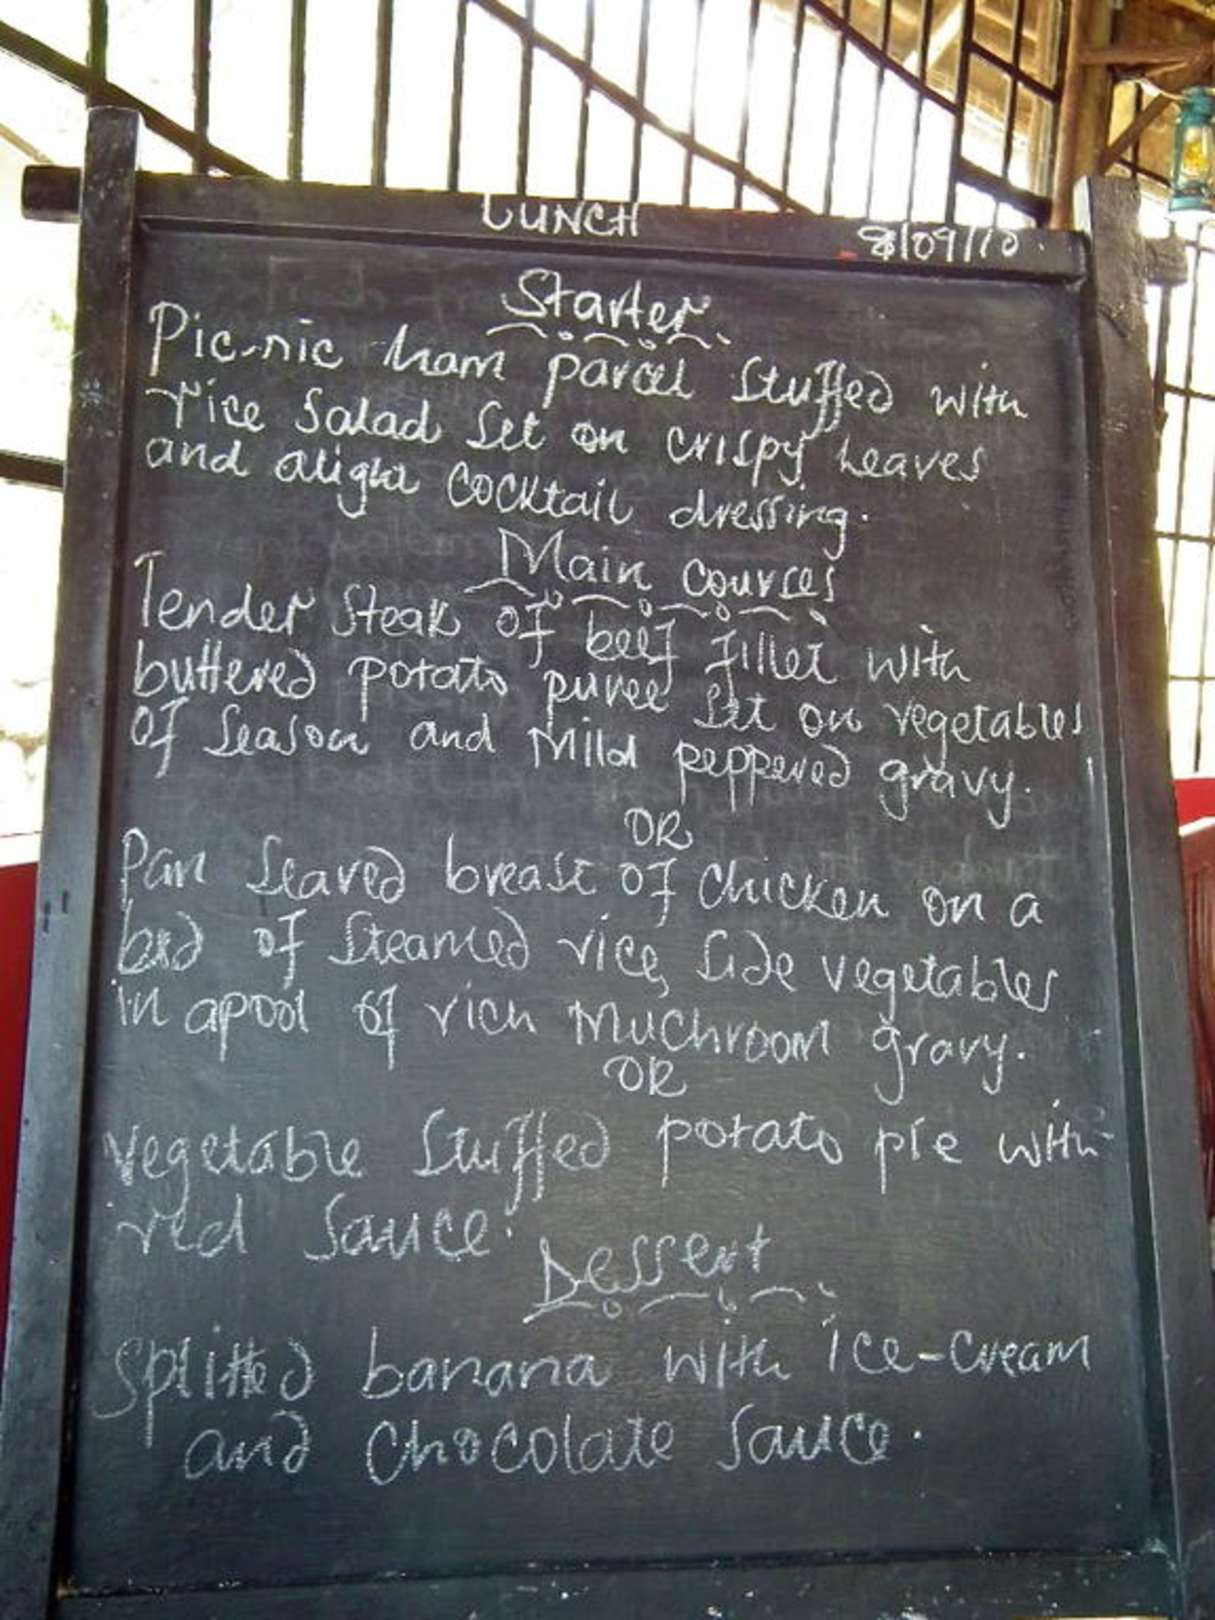 LUNCH
8/09/10
Starter
Pic-nic ham parcel stuffed with
rice salad set on crispy leaves
and alight cocktail dressing.
Main courses
Tender steak of beef fillet with
buttered potato puree set on vegetables
of season and mild peppered gravy.
OR
Pan seared breast of chicken on a
bed of steamed rice, side vegetables
in apool of rich muchroom gravy.
OR
Vegetable stuffed potato pie with
red sauce.
Dessert
Splitted banana with ice-cream
and chocolate sauce.